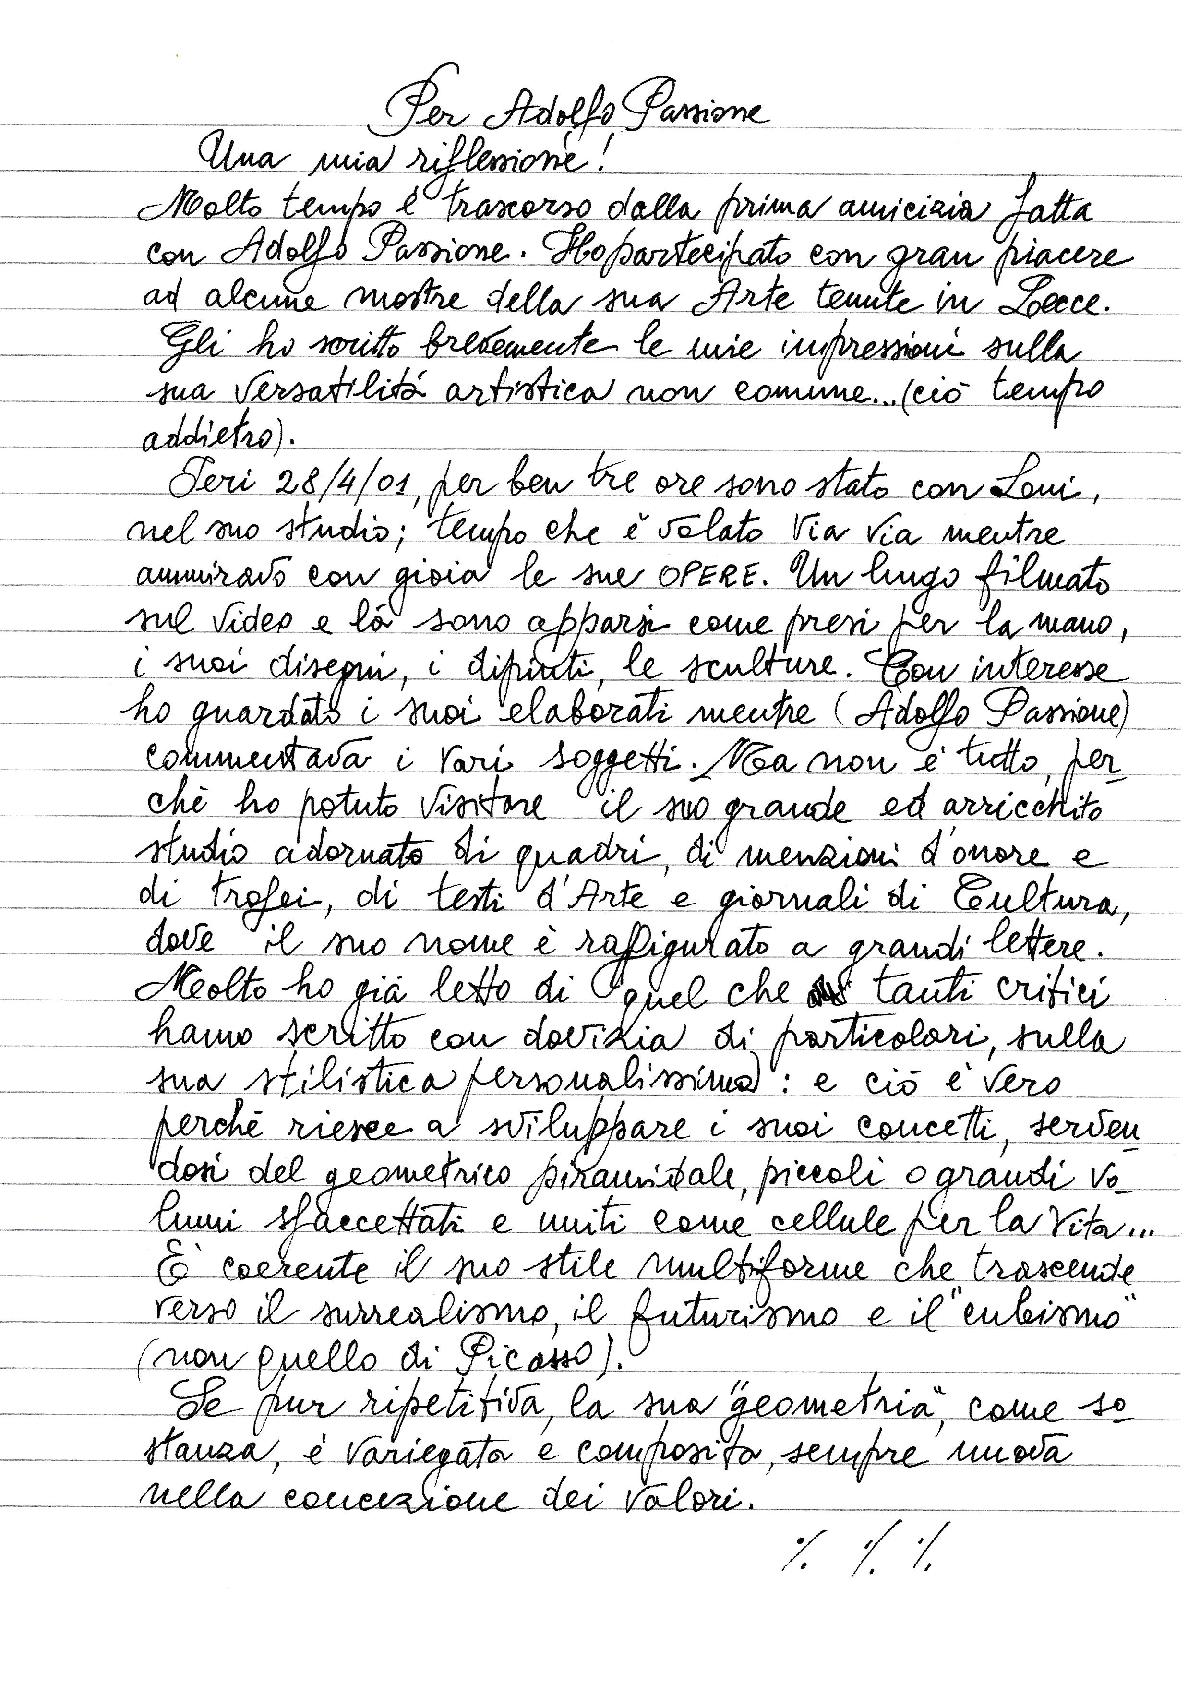 Per Adolfo Passione
Una mia riflessione!
Molto tempo è trascorso dalla prima amicizia fatta
con Adolfo Passione. Ho partecipato con gran piacere
ad alcune mostre della sua Arte tenute in Lecce.
Gli ho scritto brevemente le mie impressioni sulla
sua versatilità artistica non comune...(ciò tempo
addietro).
Ieri 28/4/01, per ben tre ore sono stato con Loui,
nel suo studio; tempo che è volato via via mentre
ammiravo con gioia le sue OPERE. Un lungo filmato
sul video e là sono apparsi come presi per la mano,
i suoi disegni, i dipinti, le sculture. Con interesse
ho guardato i suoi elaborati mentre (Adolfo Passione)
commentava i vari soggetti. Ma non è tutto, per_
chè ho potuto visitare il suo grande ed arricchito
studio adornato di quadri, di menzioni d'onore e
di trofei, di testi d'Arte e giornali di Cultura,
dove il suo nome è raffigurato a grandi lettere.
Molto ho già letto di quel che tanti critici
hanno scritto con dovizia di particolari, sulla
sua stilistica personalissima: e ciò è vero
perchè riesce a sviluppare i suoi concetti, serven_
dosi del geometrico piramidale, piccoli o grandi vo_
lumi sfaccettati e uniti come cellule per la vita...
È coerente il suo stile multiforme che trascende
verso il surrealismo, il futurismo e il "cubismo"
(non quello di Picasso).
Se pur ripetitiva, la sua "geometria", come so_
stanza, è variegata e composita, sempre nuova
nella concezione dei valori.
% % %